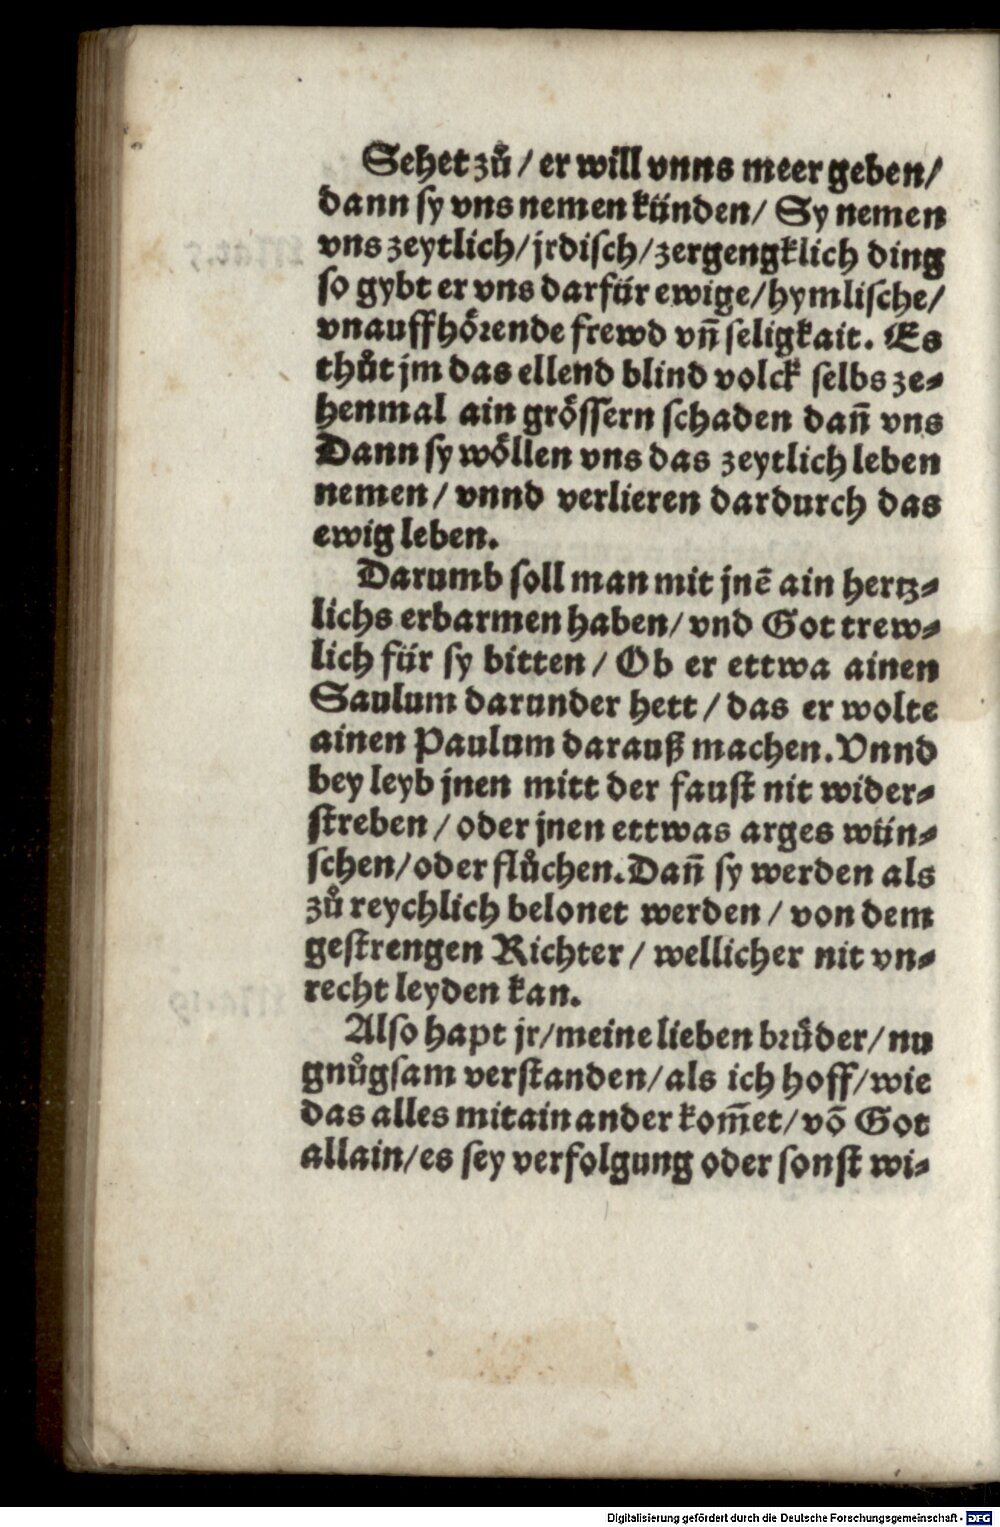 Sehet zů / er will vnns meer geben /
dann sy vns nemen künden / Sy nemen
vns zeytlich / jrdisch / zergengklich ding
so gybt er vns darfür ewige / hymlische /
vnauffhörende frewd vñ seligkait. Es
thůt jm das ellend blind volck selbs ze⸗
henmal ain grössern schaden dañ vns
Dann sy wöllen vns das zeytlich leben
nemen / vnnd verlieren dardurch das
ewig leben.
Darumb soll man mit jnē ain hertz⸗
lichs erbarmen haben / vnd Got trew⸗
lich für sy bitten / Ob er ettwa ainen
Saulum darunder hett / das er wolte
ainen Paulum darauß machen. Vnnd
bey leyb jnen mitt der faust nit wider⸗
streben / oder jnen ettwas arges wün⸗
schen / oder flůchen. Dañ sy werden als
zů reychlich belonet werden / von dem
gestrengen Richter / wellicher nit vn⸗
recht leyden kan.
Also hapt jr / meine lieben brůder / nu
gnůgsam verstanden / als ich hoff / wie
das alles mitainander kom̄et / vō Got
allain / es sey verfolgung oder sonst wi⸗
Digitalisierung gefördert durch die Deutsche Forschungsgemeinschaft - DFG